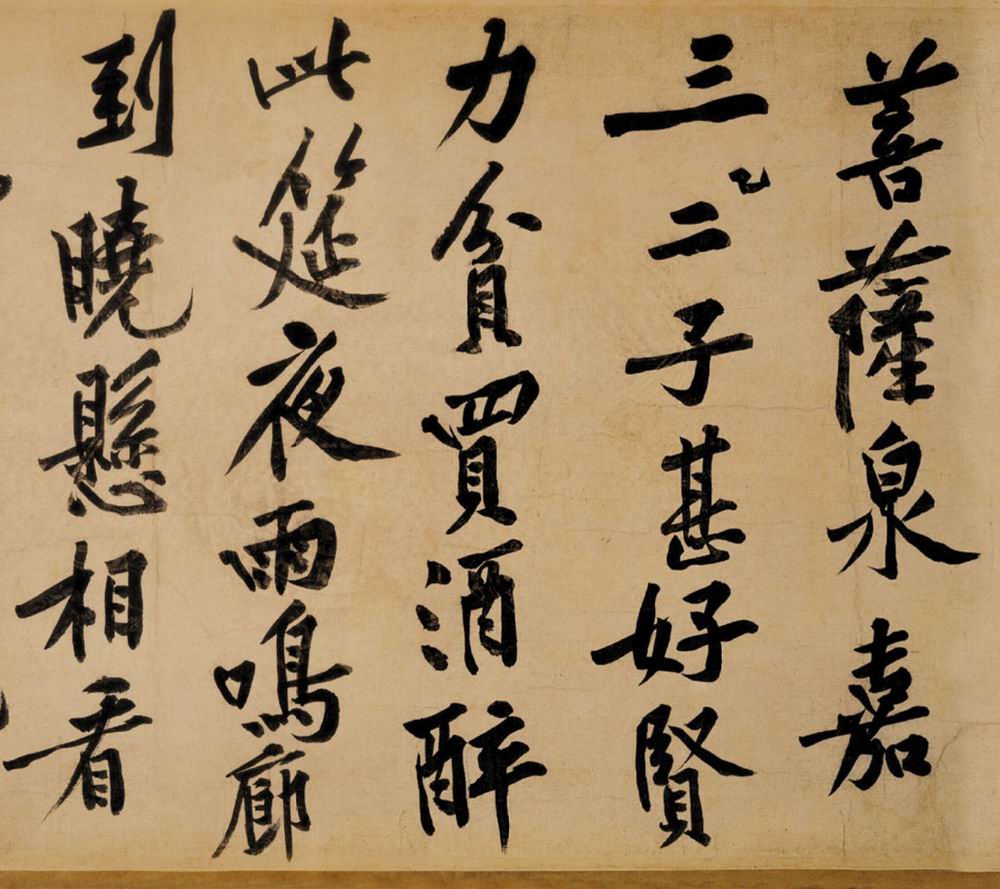 菩薩泉嘉
三〻二子甚好賢
力貧買酒醉
此筵夜雨鳴廊
到曉懸相看